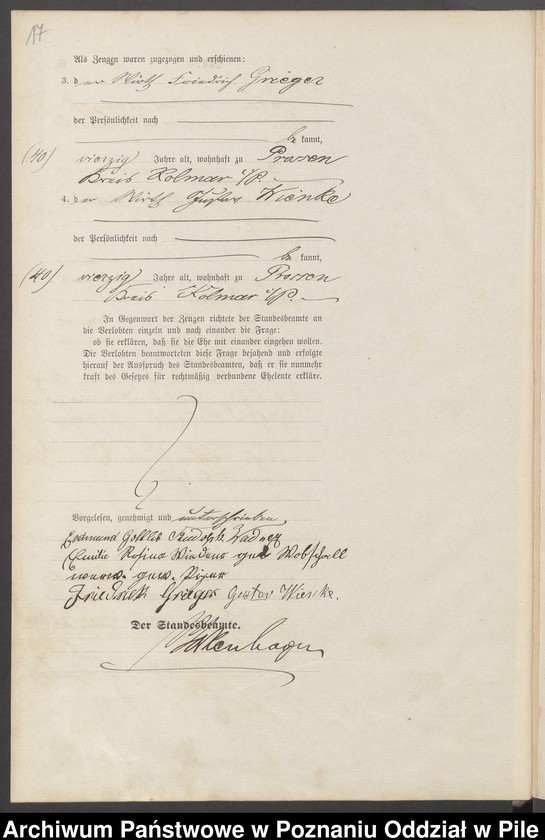 17
Als Zeugen waren zugezogen und erschienen:
3. der Wirth Friedrich Grieger
der Persönlichkeit nach
be kannt,
(40) vierzig Jahre alt, wohnhaft zu Prossen
Kreis Kolmar i/P.
4. der Wirth Gustav Wienke
der Persönlichkeit nach
be kannt,
(40) vierzig Jahre alt, wohnhaft zu Prossen
Kreis Kolmar i/P.
In Gegenwart der Zeugen richtete der Standesbeamte an
die Verlobten einzeln und nach einander die Frage:
ob sie erklären, daß sie die Ehe mit einander eingehen wollen.
Die Verlobten beantworteten diese Frage bejahend und erfolgte
hierauf der Ausspruch des Standesbeamten, daß er sie nunmehr
kraft des Gesetzes für rechtmäßig verbundene Eheleute erkläre.
Vorgelesen, genehmigt und unterschrieben
Edmund Gottlieb Rudolph
Emilie Rosina geb Wobschall
verw. gew.
Friedrich Grieger Gustav Wienke.
Der Standesbeamte.
Archiwum Państwowe w Poznaniu Oddział w Pile